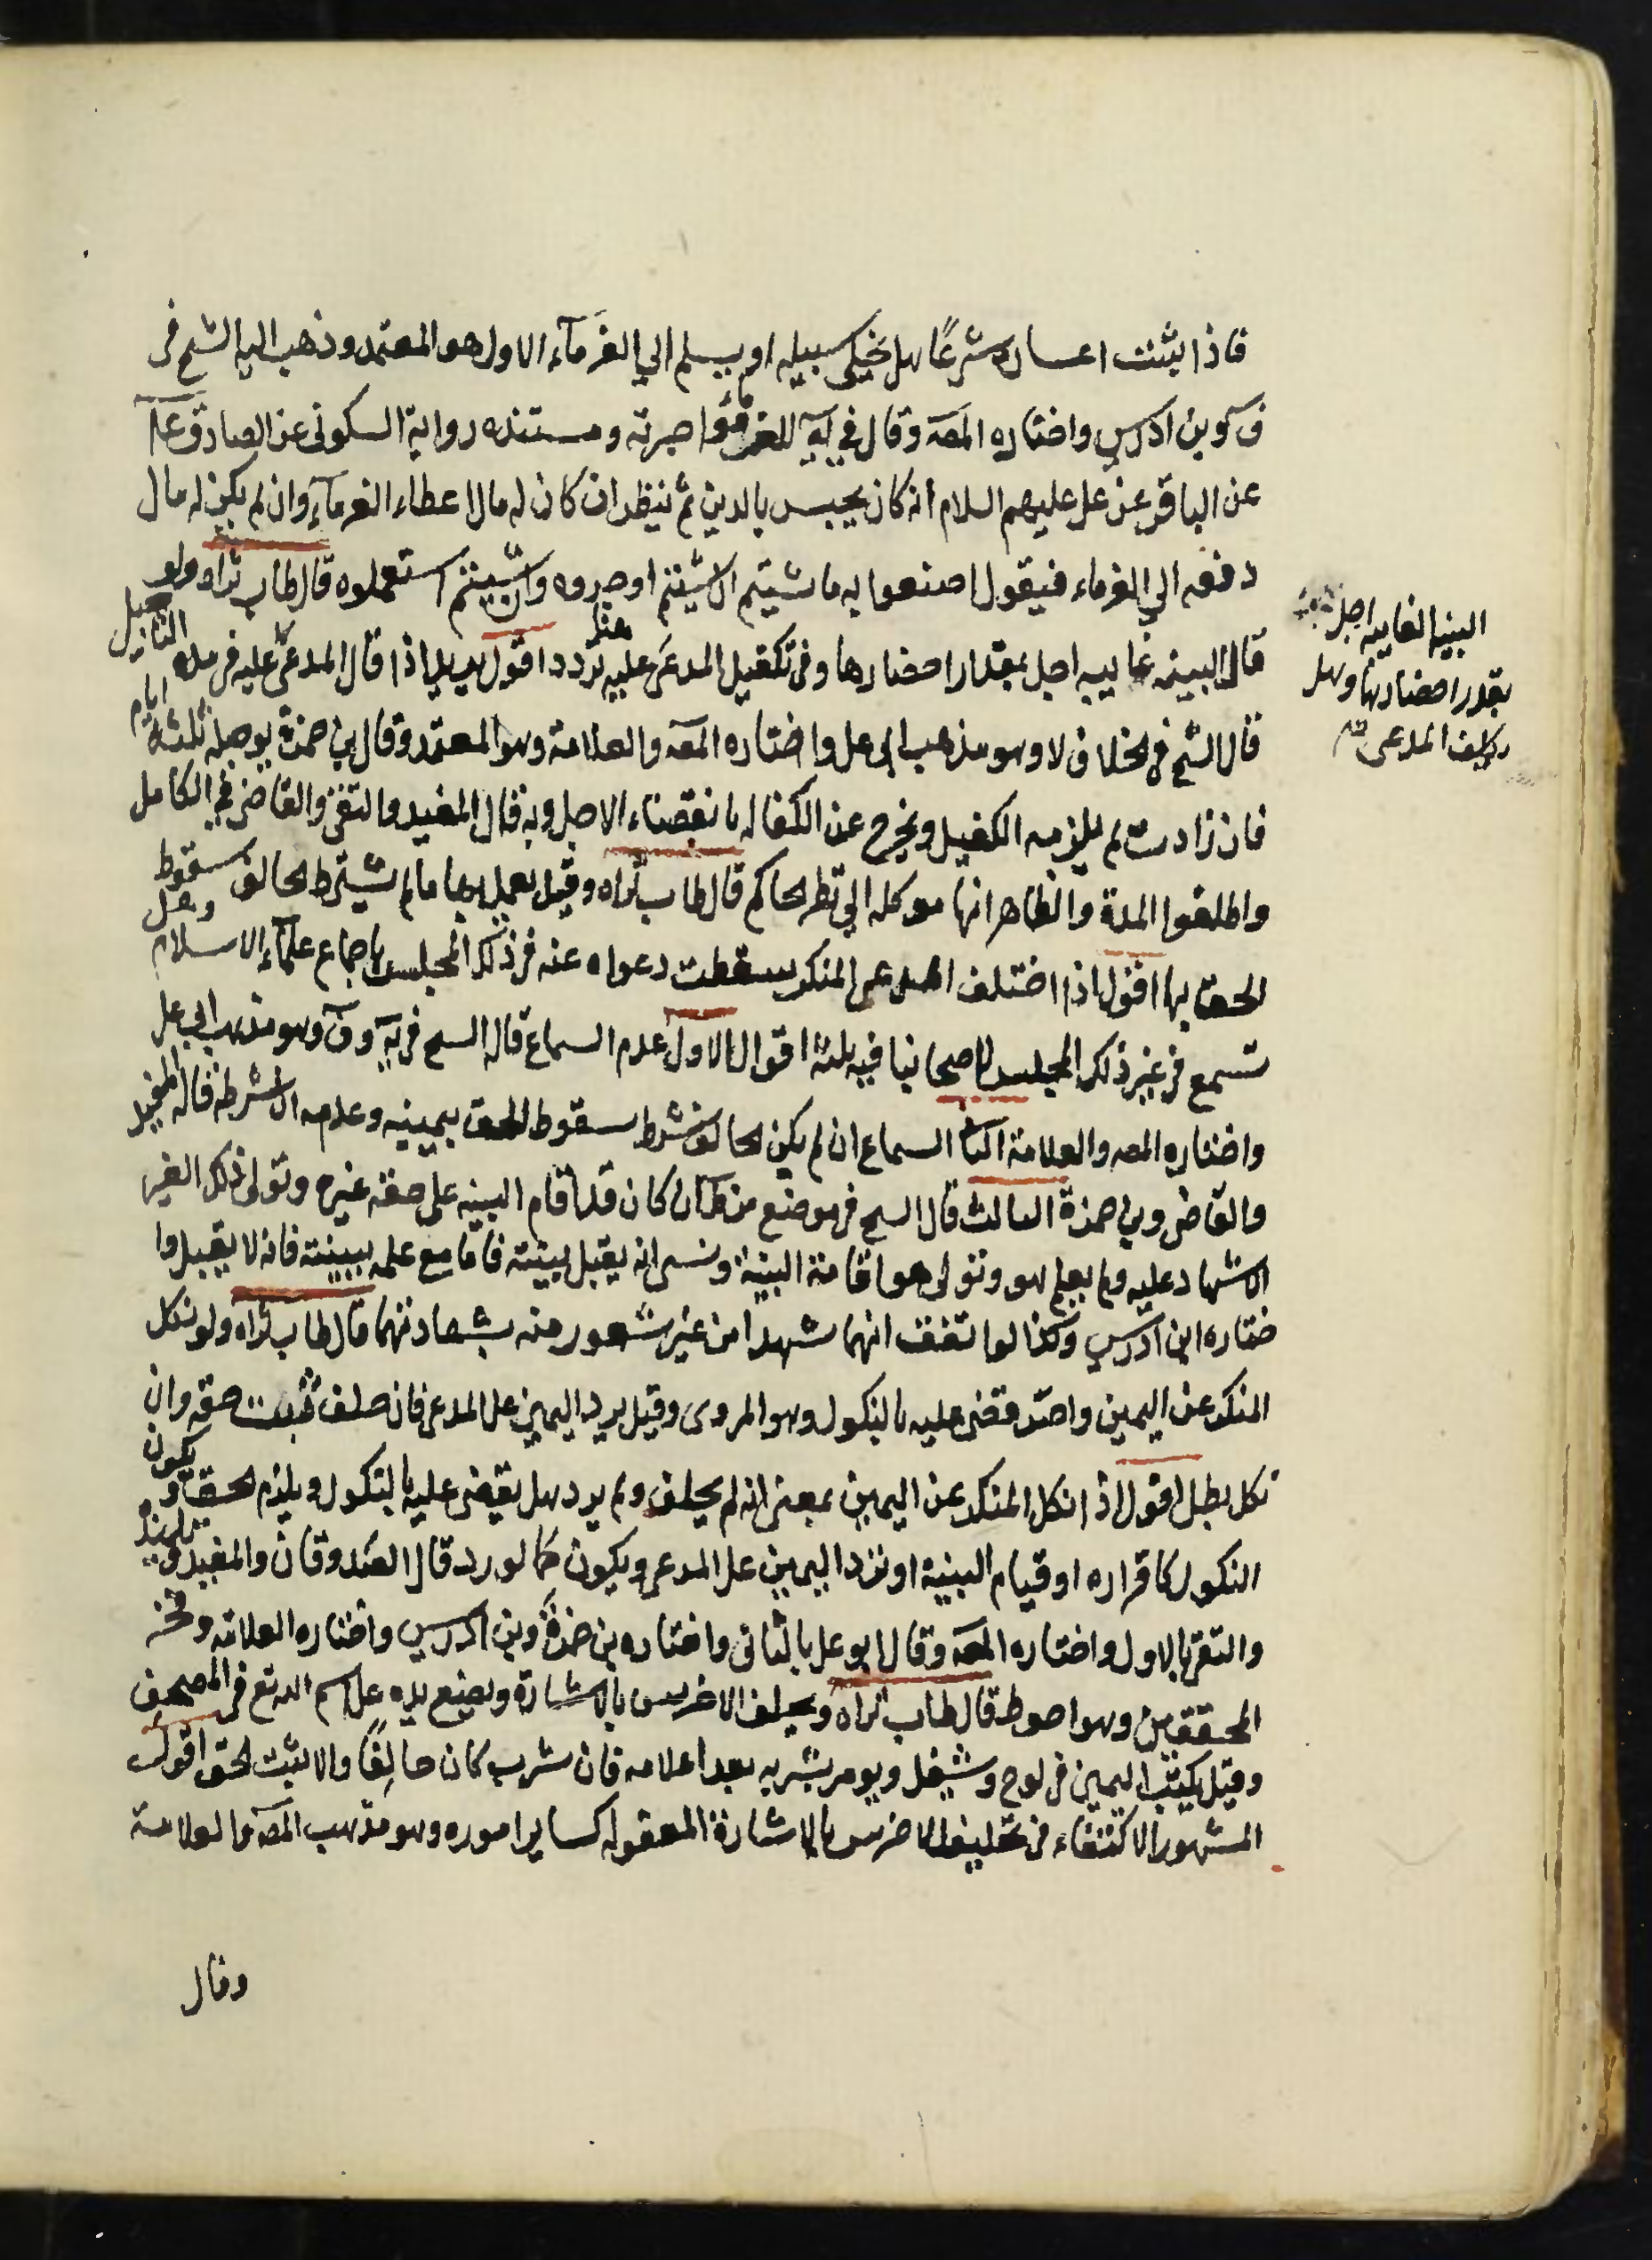 فاذا ثبتت اعساره شرعًا هل يخلى سبيله او يسلم الي الغرمآء الاول هو المعتمد وذهب اليه الشيخ في
ف وبن ادريس واختاره المصه وقال في يه للغرمآء اجرته ومستنده رواية السكوني عن الصادق عليه
عن الباقر عن علي عليهم السلام انه كان يحبس بالدين ثم ينظر ان كان له مال اعطاء الغرمآء وان لم يكن له مال
دفعه الي الغرماء فيقول اصنعوا به ما شيتم ان شيتم اوجروه وان شيتم استعملوه قال طاب ثراه ولو
قال البينه غاييه اجل بمقدار احضارها وفي تكفيل المدعى عليه تردد اقول هل يلزم اذا قال المدعى عليه في مدة التاجيل
قال الشيخ في الخلاف لا وهو مذهب ابي علي واختاره المصه والعلامة وهو المعتمد وقال بن حمزة يوجله ثلثة ايام
فان زادت لم يلزمه الكفيل ويخرج عن الكفاله بانقضاء الاجل وبه قال المفيد والتقي والقاضي في الكامل
واطلقوا المدة والظاهر انها موكله الي نظر الحاكم قال طاب ثراه وقيل يعمل بها ما لم يشترط الحالف سقوط
الحق بها اقول اذا اختلف المدعي المنكر سقطت دعواه عنه في ذلك المجلس باجماع علمآء الاسلام وهل
تسمع في غير ذلك المجلس لاصحابنا فيه ثلثة اقوال الاول عدم السماع قاله الشيخ في يه وف وهو مذهب ابي علي
واختاره المصه والعلامة الثا السماع ان لم يكن الحالف شرط سقوط الحق بيمينه وعدمه ان شرطه قاله المفيد
والقاضي وبن حمزة الثالث قال الشيخ في موضع من ط ان كان قد اقام البينه على حقه غيره وتولى ذلك الغير
الاشهاد عليه ولم يعلم هو وتولى هو اقامة البينة ونسى انه يقبل بينته فاما مع علمه ببينته فانه لا يقبل وا
ختاره ابن ادريس وكذا لو اتفقت انهما شهدا من غير شعور منه بشهادتهما قال طاب ثراه ولو نكل
المنكر عن اليمين واصر قضى عليه بالنكول وهو المروى وقيل يرد اليمين على المدعي فان حلف ثبت حقه وان
نكل بطل اقول اذا نكل المنكر عن اليمين بمعنى انه لم يحلف ولم يرد هل يقضى عليه بالنكول ويلزم الحق ويكون
النكول كاقراره او قيام البينة او ترد اليمين على المدعي ويكون كما لو رد قال الصدوقان والمفيد وتلميذه
والتقي بالاول واختاره المصه وقال ابو علي بالثاني واختاره بن حمزة وبن ادريس واختاره العلامه وفخر
المحققين وهو احوط قال طاب ثراه ويحلف الاخرس بالاشارة ويضع يده على اسم الله تع في المصحف
وقيل يكتب اليمين في لوح ويغسل ويومر بشربه بعد اعلامه فان شرب كان حالفًا والا ثبت الحق اقول
المشهور الاكتفاء في تحليف الاخرس بالاشارة المعقوله كساير اموره وهو مذهب المصه والعلامة
وقال
البينه الغاييه اجل
بقدر احضارها وهل
يكلف المدعى